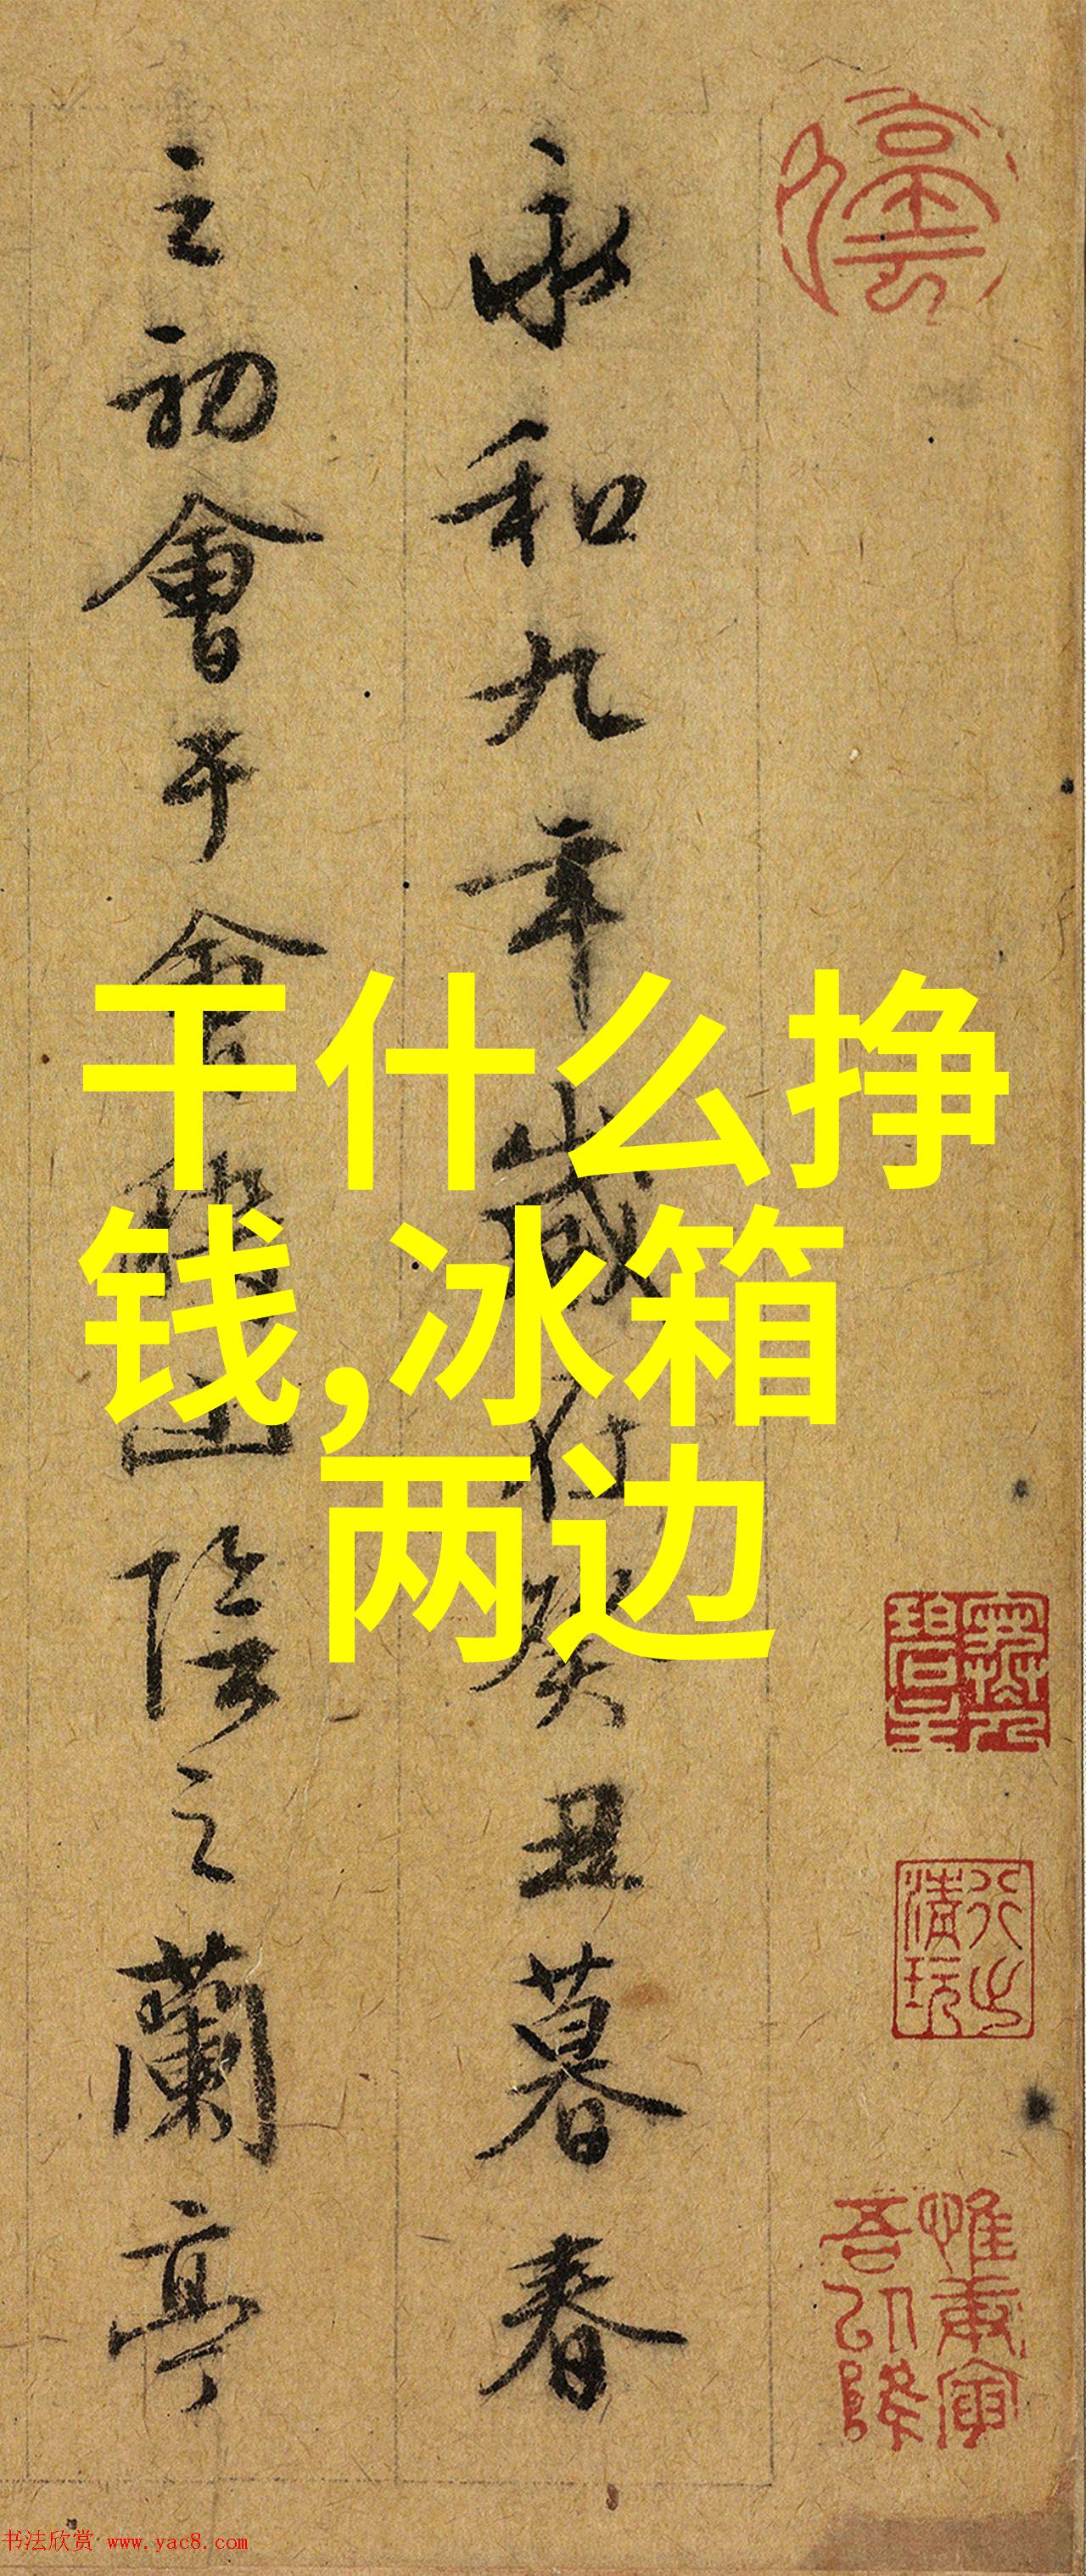 永和九年歲在癸丑暮春
之初會于會稽山陰之蘭亭
干什么挣
钱,冰箱
两边
惟庚寅
吾以降
书法欣赏 www.yac8.com